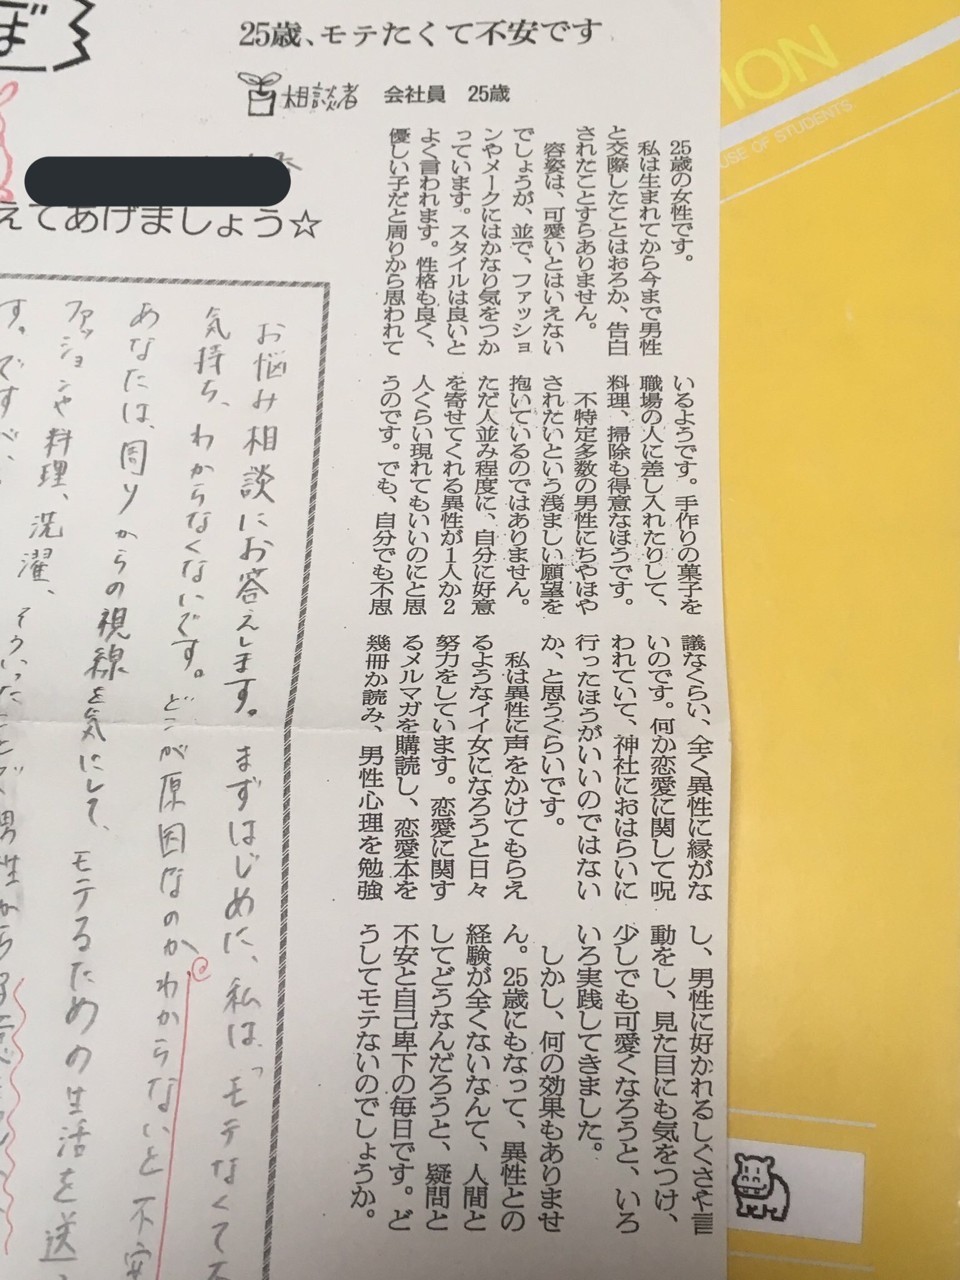 25歳、モテたくて不安です
相談者 会社員 25歳
25歳の女性です。
私は生まれてから今まで男性
と交際したことはおろか、告白
されたことすらありません。
容姿は、可愛いとはいえない
でしょうが、並で、ファッショ
ンやメークにはかなり気をつか
っています。スタイルは良いと
よく言われます。性格も良く、
優しい子だと周りから思われて
いるようです。手作りの菓子を
職場の人に差し入れたりして、
料理、掃除も得意なほうです。
不特定多数の男性にちやほや
されたいという浅ましい願望を
抱いているのではありません。
ただ人並み程度に、自分に好意
を寄せてくれる異性が1人か2
人くらい現れてもいいのにと思
うのです。でも、自分でも不思
議なくらい、全く異性に縁がな
いのです。何か恋愛に関して呪
われていて、神社におはらいに
行ったほうがいいのではない
か、と思うくらいです。
私は異性に声をかけてもらえ
るようなイイ女になろうと日々
努力をしています。恋愛に関す
るメルマガを購読し、恋愛本を
幾冊か読み、男性心理を勉強
し、男性に好かれるしぐさや言
動をし、見た目にも気をつけ、
少しでも可愛くなろうと、いろ
いろ実践してきました。
しかし、何の効果もありませ
ん。25歳にもなって、異性との
経験が全くないなんて、人間と
してどうなんだろうと、疑問と
不安と自己卑下の毎日です。ど
うしてモテないのでしょうか。
ぼ
えてあげましょう☆
お悩み相談にお答えします。まずはじめに、私は「モテなくて不
気持ち、わからなくないです。どこが原因なのかわからないと不安
あなたは、周りからの視線を気にして、モテるための生活を送
ファッションや料理、洗濯、そういったことで、男性から
す。ですべ、
ION
USE OF STUDENTS